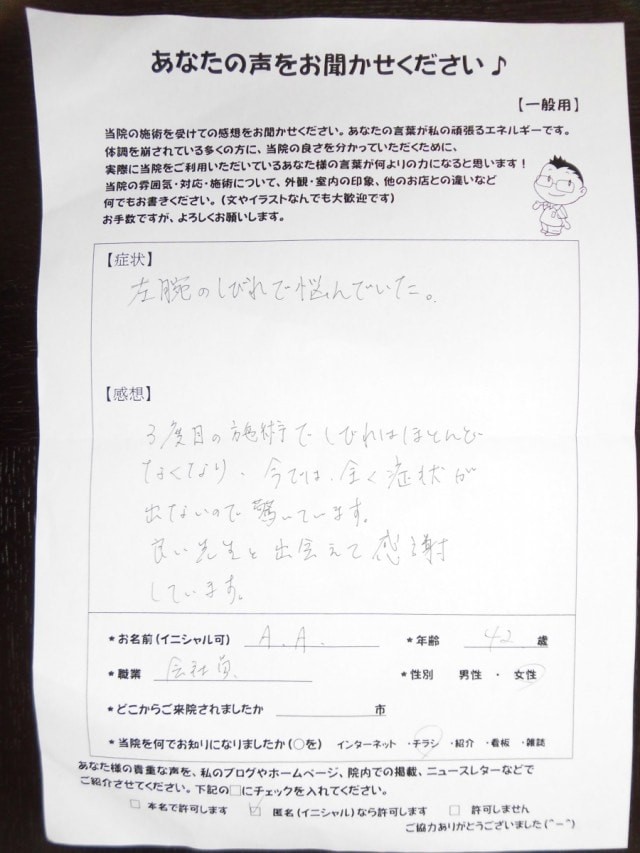 あなたの声をお聞かせください♪
【一般用】
当院の施術を受けての感想をお聞かせください。あなたの言葉が私の頑張るエネルギーです。
体調を崩されている多くの方に、当院の良さを分かっていただくために、
実際に当院をご利用いただいているあなた様の言葉が何よりの力になると思います！
当院の雰囲気・対応・施術について、外観・室内の印象、他のお店との違いなど
何でもお書きください。(文やイラストなんでも大歓迎です)
お手数ですが、よろしくお願いします。
【症状】
左腕のしびれで悩んでいた。
【感想】
3度目の施術でしびれはほとんど
なくなり、今では、全く症状が
出ないので驚いています。
良い先生と出会えて感謝
しています。
*お名前(イニシャル可) A.A. *年齢 42 歳
*職業 会社員 *性別 男性 ・ 女性
*どこからご来院されましたか 市
*当院を何でお知りになりましたか(○を) インターネット ・チラシ ・紹介 ・看板 ・雑誌
あなた様の貴重な声を、私のブログやホームページ、院内での掲載、ニュースレターなどで
ご紹介させてください。下記の□にチェックを入れてください。
□ 本名で許可します ☑ 匿名(イニシャル)なら許可します □ 許可しません
ご協力ありがとうございました(^-^)